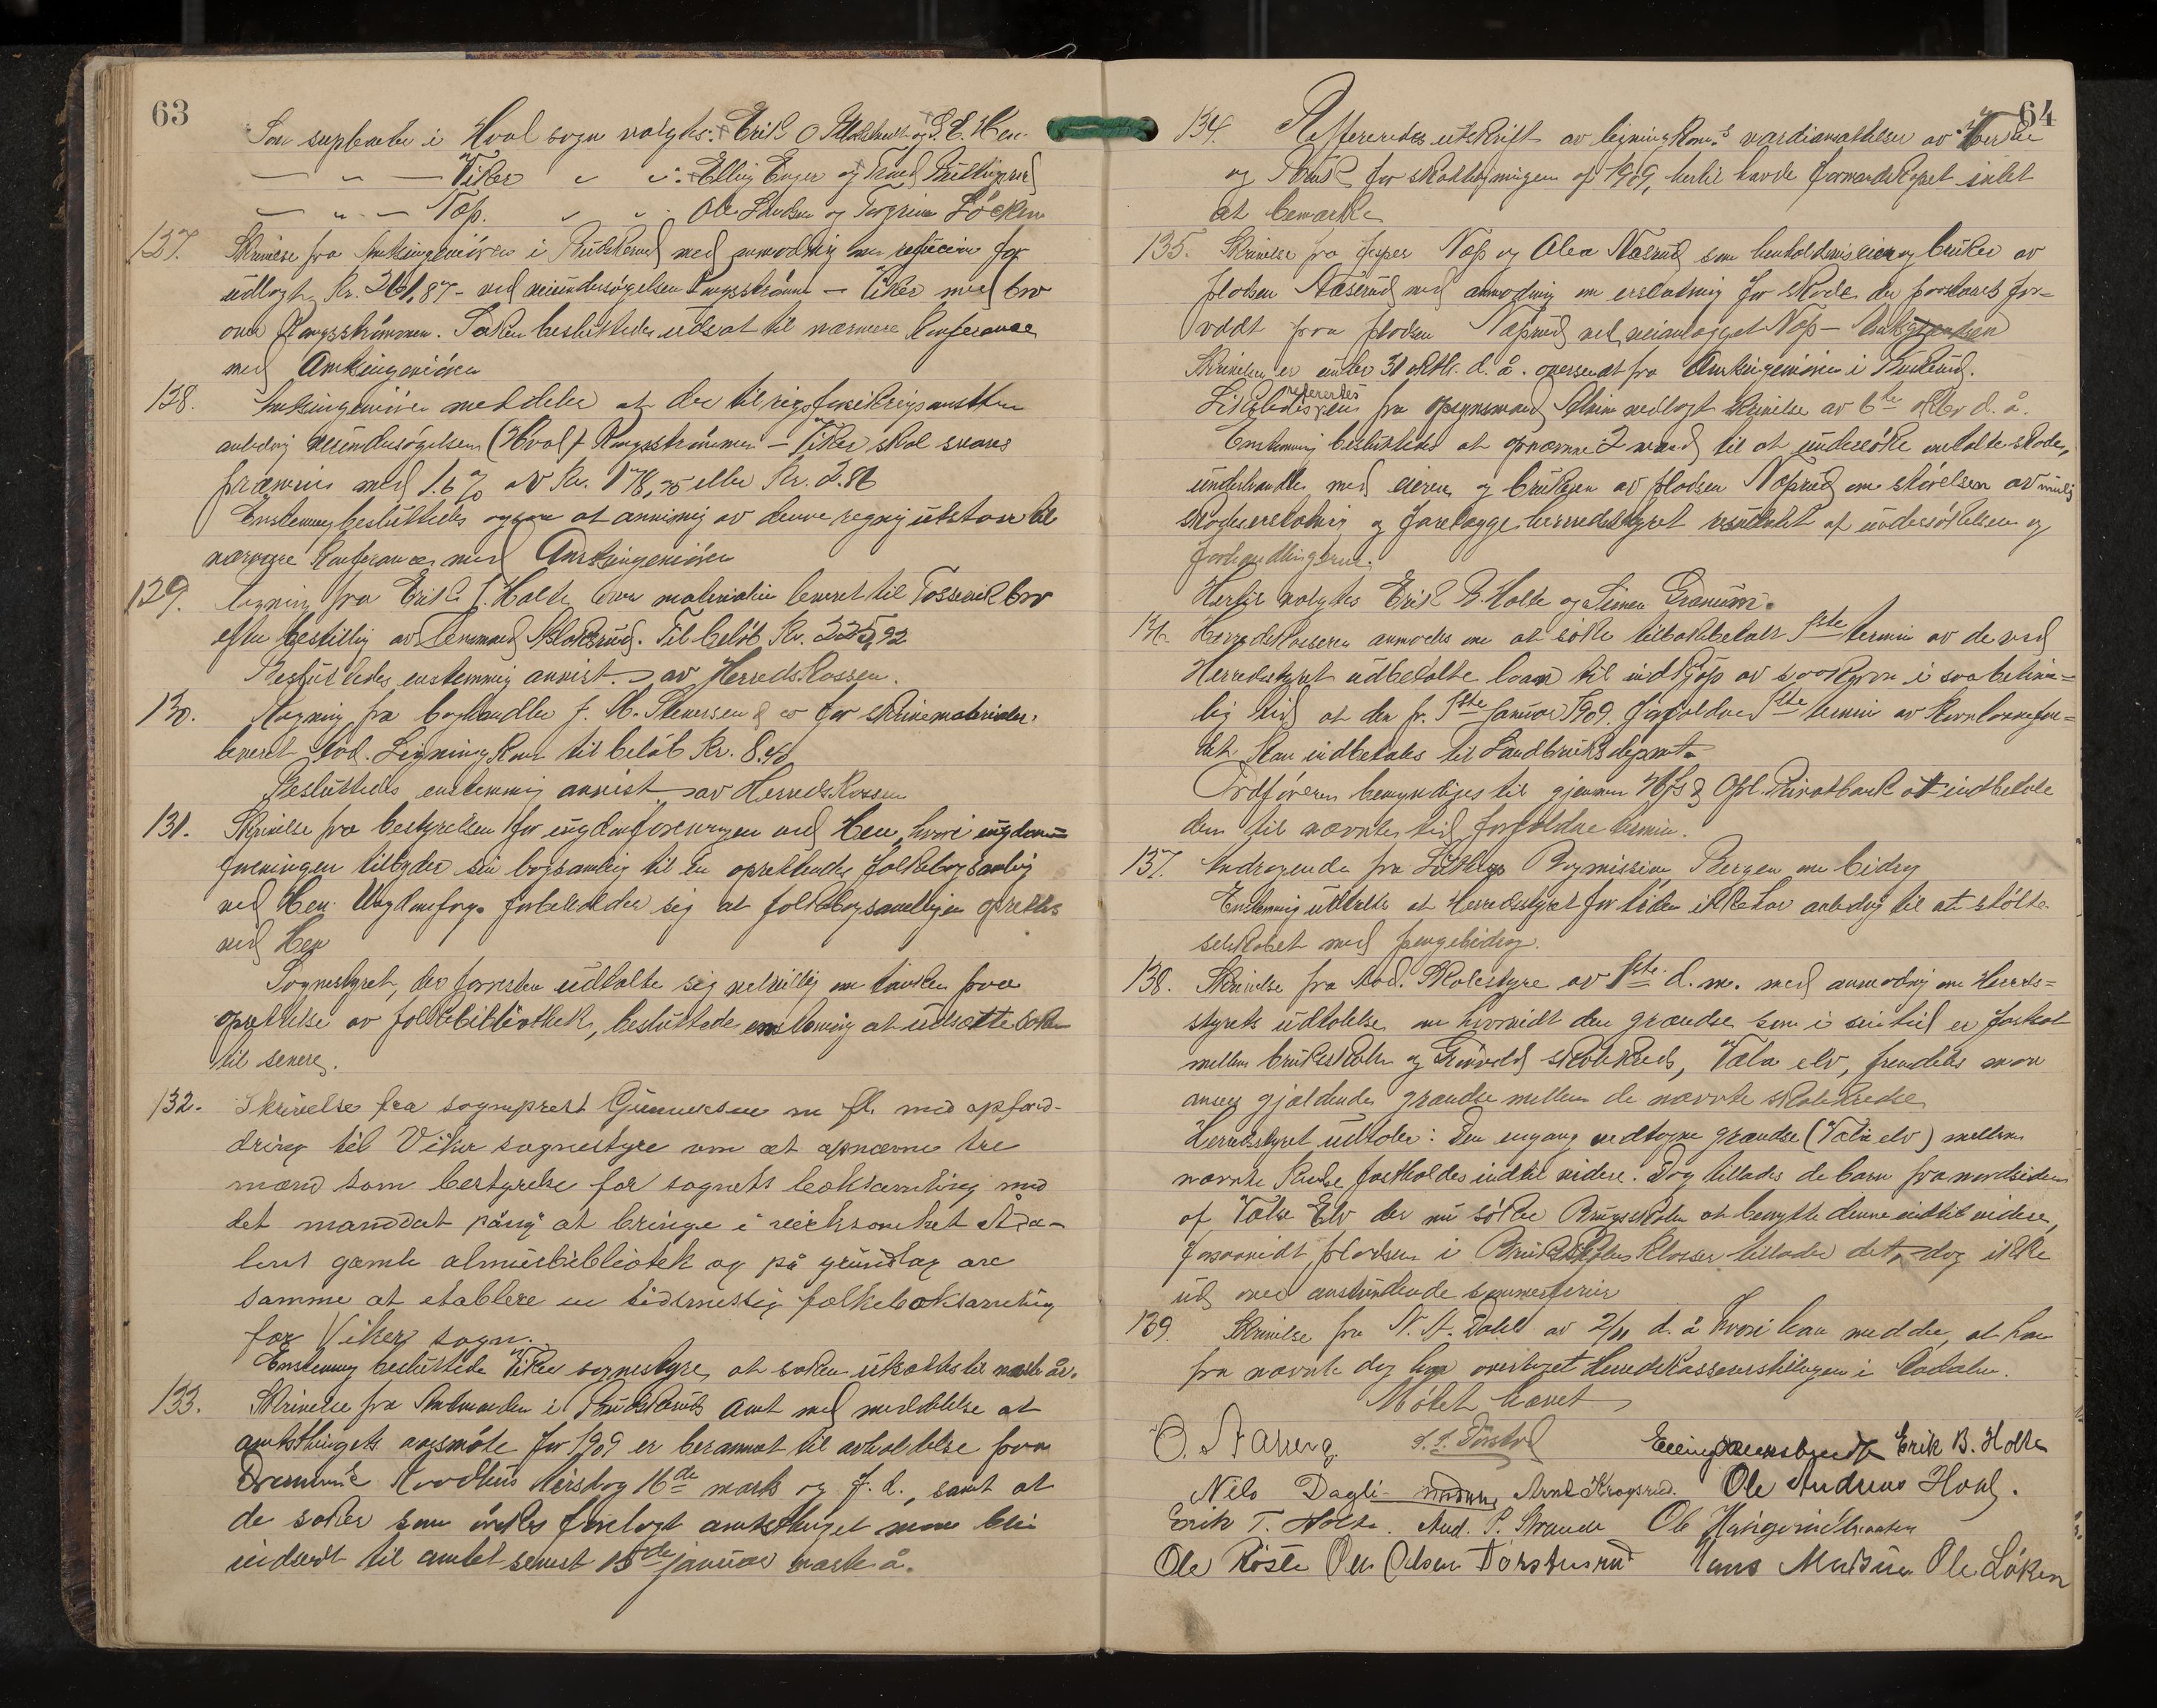 63
Som supleanter i Hval sogn valgtes: Erik O og S. E. Hen.
— " — Viker " " : Elling Enger og
— " — Næs. " " Ole og Torgrim Löken
127. Skrivelse fra Amtsingeniören i Buskerud med anmodning om refusion for
udlagt Kr. 261,87 - ved veiundersøgelsen Kongsstrømmen — Viker med bro
over Kongsstrømmen. Saken besluttedes udsat til nærmere konferance
med Amtsingeniören
128. Amtsingeniören meddeler at der til rigsforsikringsanstalten
anledning veiundersøgelsen (Hval) Kongsstrømmen — Viker skal svares
præmie med 1.6 % av Kr. 178,75 eller Kr. 2.86
Enstemmig besluttedes ogsaa at anvisning av denne regning utstaar til
nærmere konferance med Amtsingeniören
129. Regning fra Erik T. Holte over materialier leveret til bro
efter bestilling av Lensmand . Til beløb Kr. 335,92
Besluttedes enstemmig anvist av Herredskassen.
130. Regning fra boghandler J. M. Stenersen & co for skrivematerialer
leveret Aad. Ligningskom til beløb Kr. 8.40
Besluttedes enstemmig anvist av Herredskassen
131. Skrivelse fra bestyrelsen for ungdomsforeningen ved Hen, hvori ungdoms=
foreningen tilbyder sin bogsamling til en oprettende folkebogsamling
ved Hen. Ungdomsforg. forbeholder sig at folkebogsamlingen oprettes
ved Hen
Sognestyret, der forresten udtalte sig velvillig om tanken paa
oprettelse av folkebibliothek, besluttede enstemmig at udsætte saken
til senere.
132. Skrivelse fra sogneprest Gunnersen m fl. med opford-
dring til Viker sognestyre om at opnævne tre
mænd som bestyrelse for sognets boksamling med
det manddat påny at bringe i virksomhet Åda-
lens gamle almuebibliotek og på grundlag av
samme at etablere en tidsmessig folkeboksamling
for Viker sogn.
Enstemmig besluttede Viker sognestyre, at saken utsættes til næste år.
133. Skrivelse fra Amtmanden i Buskeruds amt med meddelelse at
amtsthingets aarsmöte for 1909 er berammet til avholdelse paa
Drammens Raadhus tirsdag 16de marts og f. d., samt at
de saker som önskes forelagt amtsthinget maa bli
indsendt til amtet senest 15de januar næste å.
64
134. Reffereredes utskrift av ligningskom.s værdiansættelser av Værker
og Bruk for skatteligningen af 1909, hertil havde formandskapet intet
at bemærke
135. Skrivelse fra Jesper Næs og Olea Næsrud som henholdsvis eier og bruker av
pladsen Næserud med anmodning om erstatning for skade der paastaaes for-
voldt paa pladsen Næsrud ved veianlægget Næs —
Skrivelsen er under 31 oktbr. d. å. oversendt fra Amtsingeniören i Buskerud.
Ligeledes refereredes en fra opsynsmand vedlagt skrivelse av 6te oktbr d. å.
Enstemmig besluttedes at opnævne 2 mænd til at undersöke omtalte skade,
underhandle med eieren og brukeren av pladsen Næsrud om störelsen av mulig
skadeserstatning og forelægge herredsstyret resultatet af undersökelsen og
forhandlingerne.
Hertil valgtes Erik B. Holte og Simen Granum.
136. Herredskasseren anmodes om at söke tilbakebetalt 1ste termin av de ved
Herredsstyret udbetalte laan til indkjöp av saakorn i saa betime=
lig tid at den pr. 1ste Januar 1909 forfaldne 1ste termin av kornlaanefon=
det kan indbetales til Landbruksdepmt.
Ordföreren bemyndiges til gjennem Hfs & Opl. Privatbank at indbetale
den til nævnte tid forfaldne termin.
137. Andragende fra Bogmission, Bergen om bidrag
Enstemmig udtaltes at Herredsstyret for tiden ikke har anledning til at stötte
selskabet med pengebidrag.
138. Skrivelse fra Aad. Skolestyre av 1ste d. m. med anmodning om Herreds=
styrets udtalelse om hvorvidt den grændse som i sin tid er fastsat
mellem bruksskolen og skolekreds, Væla elv, fremdeles maa
ansees gjældende grændse mellem de nævnte skolekredse
Herredsstyret udtaler: Den engang vedtagne grændse (Væla elv) mellem
nævnte kredse fastholdes indtil videre. Dog tillades de barn fra nordsiden
af Væla Elv der nu söker Bruksskolen at benytte denne indtil videre,
forsaavidt pladsen i Bruksskolens klasser tillader det, dog ikke
ud over anstundende sommerferie
139. Skrivelse fra N. A. Dahl av 2/11 d. å hvori han meddeler, at han
fra nævnte dag har overtaget Herredskassererstillingen i Aadalen.
Mötet hævet
Erik B. Holte
Nils Dagli Arne Kragsrud. Ole Andreas Hval.
Erik T. Holte. And. P. Strande Ole
Ole Röste Ole Olsen Hans Ole Löken